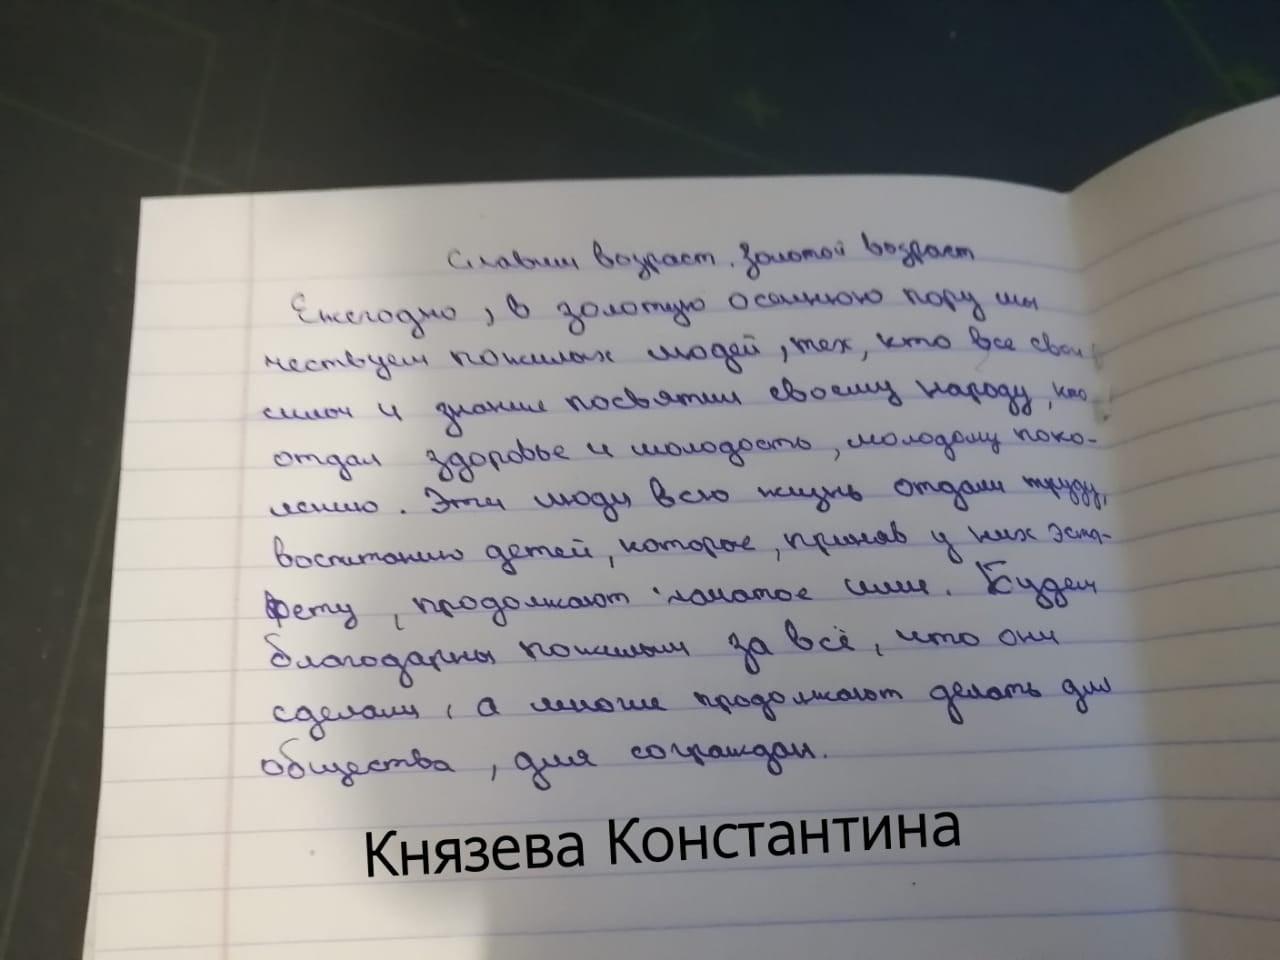 Славим возраст. Золотой возраст
Ежегодно, в золотую осеннюю пору мы
чествуем пожилых людей, тех, кто все свои
силы и знание посвятил своему народу, кто
отдал здоровье и молодость, молодому поко-
лению. Эти люди всю жизнь отдали труду,
воспитанию детей, которые, приняв у них эста-
фету, продолжают начатое ими. Будем
благодарны пожилым за всё, что они
сделали, а многие продолжают делать для
общества, для сограждан.
Князева Константина